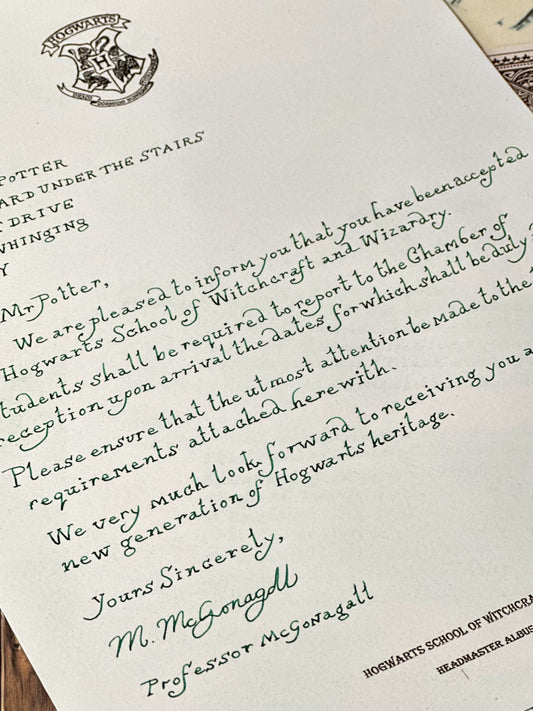 HOGWARTS
H
POTTER
ARD UNDER THE STAIRS
T DRIVE
WHINGING
Y
Mr Potter,
We are pleased to inform you that you have been accepted
Hogwarts School of Witchcraft and Wizardry.
tudents shall be required to report to the Chamber of
reception upon arrival the dates for which shall be duly
Please ensure that the utmost attention be made to the
requirements attached herewith.
We very much look forward to receiving you a
new generation of Hogwarts heritage.
Yours Sincerely,
M. McGonagall
Professor McGonagall
HOGWARTS SCHOOL OF WITCHCRA
HEADMASTER ALBUS